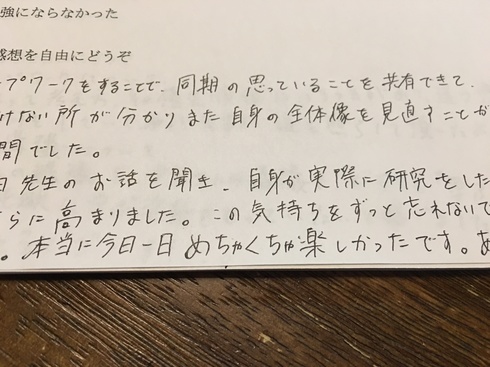 強にならなかった
感想を自由にどうぞ
プワークをすることで、同期の思っていることを共有できて、
けない所が分かりまた自身の全体像を見直すことが
間でした。
先生のお話を聞き、自身が実際に研究をした
らに高まりました。この気持ちをずっと忘れないで
。本当に今日一日めちゃくちゃ楽しかったです。あ